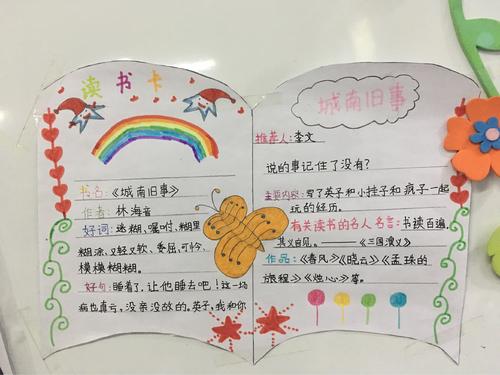 读书卡
书名：《城南旧事》
作者：林海音
好词：迷糊、嘱咐、糊里
糊涂、又轻又软、委屈、可怜、
模模糊糊。
好句：睡着了，让他睡去吧！这一场
病也真亏，没亲没故的。英子，我和你
城南旧事
推荐人：李文
说的事记住了没有？
主要内容：写了英子和小挂子和疯子一起
玩的经历。
有关读书的名人名言：书读百遍，
其义自见。——《三国演义》
作品：《春风》《晓云》《孟珠的
旅程》《烛心》等。